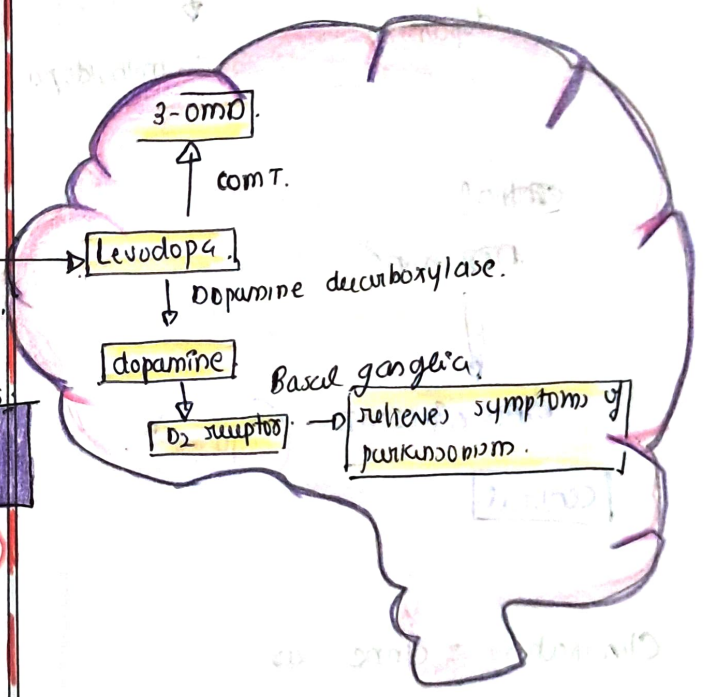 3-OMD.
COMT.
Levodopa.
Dopamine decarboxylase.
dopamine
Basal ganglia.
D2 receptor
relieves symptoms of
parkinsonism.